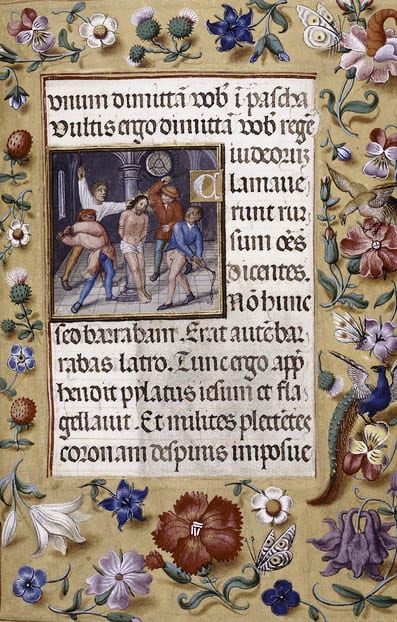 vnum dimittā vob̄ ī pascha
Vultis ergo dimittā vob̄ regē
iudeorum
Clamaue,
runt rur
sum oēs
dicentes.
Nō hunc
sed barraban. Erat autē bar
rabas latro. Tunc ergo app̄
hendit pylatus iesum et fla
gellauit. Et milites plectētes
coronam de spinis imposue